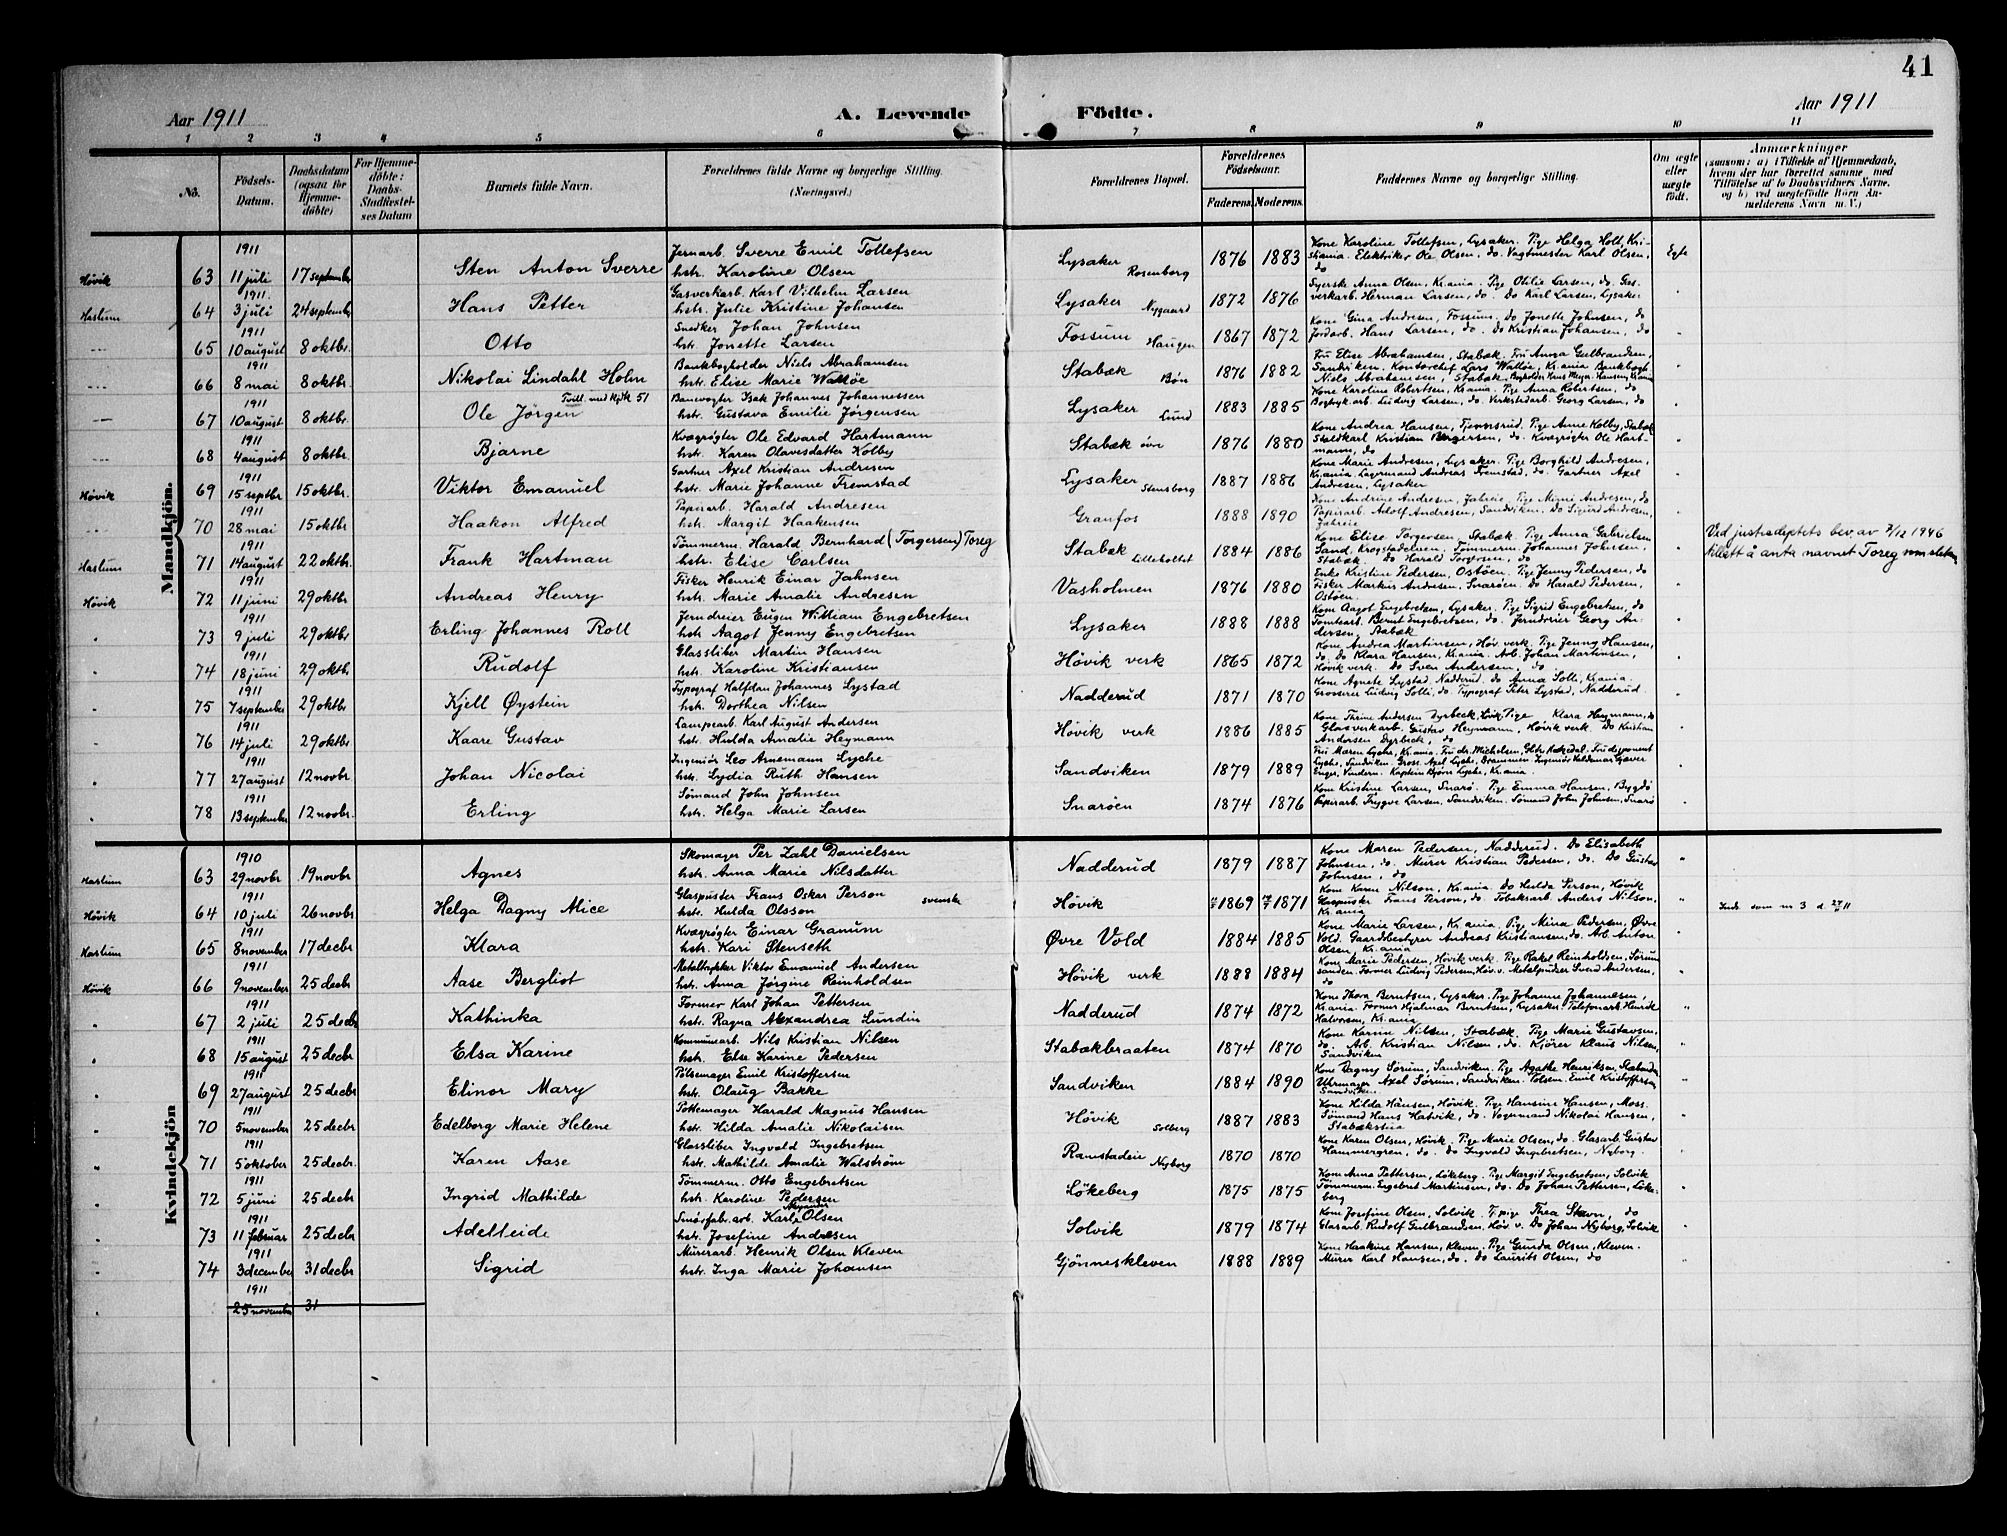 41
Aar 1911 A. Levende Födte. Aar 1911
1 2 3 4 5 6 7 8 9 10 11
No. Födsels-Datum. Daabsdatum (ogsaa for Hjemmedöbte) For Hjemmedöbte: Daabs-Stadfæstelses Datum Barnets fulde Navn. Forældrenes fulde Navne og borgerlige Stilling. (Næringsvei.) Forældrenes Bopæl. Forældrenes Födselsaar. Faderens. Moderens. Faddernes Navne og borgerlige Stilling. Om ægte eller uægte født. Anmærkninger (saasom: a) i Tilfælde af Hjemmedaab, hvem der har forrettet samme, med Tilföielse af to Daabsvidners Navne, og b) ved uægtefödte Börn Anmelderens Navn m. V.)
Mandkjön.
Høvik 63 1911 11 juli 17 september Sten Anton Sverre Jernarb. Sverre Emil Tollefsen hstr. Karoline Olsen Lysaker Rosenborg 1876 1883 Kone Karoline Tollefsen, Lysaker. Pige Helga Holt, Kristiania. Elektriker Ole Olsen, do. Vagtmester Karl Olsen, do Egte
Haslum 64 1911. 3 juli 24 september Hans Petter Gasverkarb. Karl Vilhelm Larsen hstr. Julie Kristine Johansen Lysaker Nygaard 1872 1876 Syerske Anna Olsen, Kr.ania. Pige Otilie Larsen, do. Gasverkarb. Herman Larsen, do. do Karl Larsen, Lysaker "
65 1911 10 august 8 oktbr. Otto Snedker Johan Johnsen hstr. Jonette Larsen Fossum Haugen 1867 1872 Kone Gina Andresen, Fossum, do Jonette Johnsen, do Jordarb. Hans Larsen, do. do Kristian Johansen, do "
66 1911 8 mai 8 oktbr. Nikolai Lindahl Holm Bankbogholder Niels Abrahamsen hstr. Elise Marie Walløe Stabæk Bøn 1876 1882 Fru Elise Abrahamsen, Stabæk. Fru Anna Gulbrandsen, Sandviken. Kontorchef Lars Walløe, Kr.ania Niels Abrahamsen, Stabæk. "
67 1911 10 august 8 oktbr. Ole Jörgen Tvill. med kjk 51 Banevogter Isak Johannes Johannessen hstr. Gustava Emilie Jørgensen Lysaker Lund 1883 1885 Kone Karoline Robertsen, Kr.ania. Pige Anna Robertsen, do Bogtryk.arb. Ludvig Larsen, do. Verkstedarb. Georg Larsen, do "
68 1911 4 august 8 oktbr. Bjarne Kvægrøgter Ole Edvard Hartmann hstr. Karen Olavesdatter Kolby Stabæk øvre 1876 1880 Kone Andrea Hansen, Pige Anne Kolby, Stabæk Staldkarl Kristian Bergersen, do. Kvægrøgter Ole Hartmann, do "
Høvik 69 1911 15 septbr 15 oktbr. Viktor Emanuel Gartner Axel Kristian Andresen hstr. Marie Johanne Fremstad Lysaker Stensborg 1887 1886 Kone Marie Andresen, Lysaker. Pige Borghild Andresen, Kr.ania. Lagermand Andreas Fremstad, do. Gartner Axel Andresen, Lysaker "
70 1911 28 mai 15 oktbr. Haakon Alfred Papirarb. Harald Andresen hstr. Margit Haakensen Granfos 1888 1890 Kone Andrine Andresen, Jahreie, Pige Mimi Andresen, do Papirarb. Adolf Andresen, Sandviken. Do Sigurd Andresen, Jahreie "
Haslum 71 1911 14 august 22 oktbr. Frank Hartman Tömmerm. Harald Bernhard (Torgersen) Toreg hstr. Elise Carlsen Stabæk Lilleholtet 1884 1886 Kone Elise Torgersen, Stabæk. Pige Anna Gabrielsen Sand. Krogstadelven. Tømmerm. Johannes Johnsen, Stabæk. do Harald Torgersen, do Ved justisdeptets bev. av 7/12 1946 tillatt å anta navnet Toreg som slektsn.
Høvik 72 1911 11 juni 29 oktbr Andreas Henry Fisker Henrik Einar Jahnsen hstr. Marie Amalie Andresen Vasholmen 1876 1880 Enke Kristine Pedersen, Ostøen. Pige Jenny Pedersen, do Fisker Markus Andresen, Snarøen. Do Harald Pedersen, Ostøen. "
73 1911 9 juli 29 oktbr Erling Johannes Roll Jerndreier Eugen William Engebretsen hstr. Aagot Jenny Engebretsen Lysaker 1888 1888 Kone Aagot Engebretsen, Lysaker. Pige Sigrid Engebretsen, do Tomtearb. Bernt Engebretsen, do. Jerndreier Georg Andersen, Stabæk "
74 1911 18 juni 29 oktbr Rudolf Glassliber Martin Hansen hstr. Karoline Kristiansen Høvik verk 1865 1872 Kone Andrea Martinsen, Høv. verk. Pige Jenny Hansen, do. do Klara Hansen, Kr.ania. Arb. Johan Martinsen, Høvik verk. do Sven Andersen, do "
75 1911 7 september 29 oktbr Kjell Øystein Typograf Halfdan Johannes Lystad hstr. Dorthea Nilsen Nadderud 1871 1870 Kone Agnete Lystad, Nadderud. do Anna Solli, Kr.ania. Grosserer Ludvig Solli, do. Typograf Peter Lystad, Nadderud "
76 1911 14 juli 29 oktbr Kaare Gustav Lampearb. Karl August Andersen hstr. Hulda Amalie Heymann Høvik verk 1886 1885 Kone Thrine Andersen Dyrbeck, Høvik. Pige Klara Heymann, do Glasverkarb. Gustav Heymann, Høvik verk. Do Kristian Andersen Dyrbeck, do "
77 1911 27 august 12 novbr. Johan Nicolai Ingeniör Leo Arnemann Lyche hstr. Lydia Ruth Hansen Sandviken 1879 1889 Fru Maren Lyche, Kr.ania. Fru dr. Michelsen, Lyche, Sandviken. Gross. Axel Lyche, Drammen. Ingeniør Valdemar Enger, Vinderen. Kaptein Bjørn Lyche, Kr.ania. "
78 1911 13 september 12 novbr. Erling Sømand John Johnsen hstr. Helga Marie Larsen Snarøen 1874 1876 Kone Kristine Larsen, Snarø. Pige Emma Hansen, Bygdø Papirarb. Trygve Larsen, Sandviken. Sømand John Johnsen, Snarø "
Kvindekjön
Haslum 63 1910 29 novbr 19 novbr Agnes Skomager Per Zahl Danielsen hstr. Anna Marie Nilsdatter Nadderud 1879 1887 Kone Maren Pedersen, Nadderud. Do Elisabeth Johnsen, do. Murer Kristian Pedersen, do. Do Gustav Johnsen, do "
Høvik 64 1911 10 juli 26 novbr Helga Dagny Alice Glaspuster Frans Oskar Person hstr. Hulda Olsson svenske Høvik 1869 1871 Kone Karen Nilson, Kr.ania. Do Hulda Person, Høvik Glaspuster Frans Person, do. Tobaksarb. Anders Nilson, Kr.ania " Inds. som nr 3 d. 27/11
Haslum 65 1911 8 november 17 decbr. Klara Kvægrøgter Einar Granum hstr. Kari Stenseth Øvre Vold 1884 1885 Kone Marie Larsen, Kr.ania. Pige Mina Pedersen, Øvre Vold. Gaardsbestyrer Andreas Kristiansen, do. Arb. Anton Olsen, Kr.ania "
Høvik 66 1911 9 november 25 decbr Aase Bergliot Metaltrykker Viktor Emanuel Andersen hstr. Anna Jørgine Reinholdsen Høvik verk 1888 1884 Kone Marie Pedersen, Høvik verk. Pige Rakel Reinholdsen, Sörumsanden. Former Ludvig Pedersen, Høv. v. Metalpudser Svend Andersen, do "
67 1911 2 juli 25 decbr Kathinka Former Karl Johan Pettersen hstr. Ragna Alexandrea Lundin Nadderud 1874 1872 Kone Thora Berntsen, Lysaker. Pige Johanne Johannesen, Kr.ania. Former Hjalmar Berntsen, Lysaker. Telefonarb. Henrik Halvorsen, Kr.ania "
68 1911 15 august 25 decbr Elsa Karine Kommunearb. Nils Kristian Nilsen hstr. Else Karine Pedersen Stabækbraaten 1874 1870 Kone Karine Nilsen, Stabæk. Pige Marie Gustavsen, do. Arb. Kristian Nilsen, do. Kjører Klaus Nilsen, Sandviken "
69 1911 27 august 25 decbr Elinor Mary Pølsemager Emil Kristoffersen hstr. Olaug Bakke Sandviken 1884 1890 Kone Dagny Sørum, Sandviken. Pige Agathe Henriksen, Uhrmager Axel Sørum, Sandviken. Emil Kristoffersen, Sandviken "
70 1911 5 november 25 decbr. Edelborg Marie Helene Pottemager Harald Magnus Hansen hstr. Hilda Amalie Nikolaisen Høvik Solberg 1887 1883 Kone Hilda Hansen, Høvik. Pige Hansine Hansen, Moss. Sømand Hans Hatvik, do. Vognmand Nikolai Hansen, Stabækstua "
71 1911 5 oktober 25 decbr. Karen Aase Glassliber Ingvald Ingebretsen hstr. Mathilde Amalie Walström Ramstadeie Nyborg 1870 1870 Kone Karen Olsen, Høvik. Pige Marie Olsen, do. Glasarb. Gustav Hammergren, do. do Ingvald Ingebretsen, Nyborg. "
72 1911 5 juni 25 decbr Ingrid Mathilde Tömmerm. Otto Engebretsen hstr. Karoline Pedersen Lökeberg 1875 1875 Kone Anna Pettersen, Lökeberg. Pige Margit Engebretsen, Solvik Tømmerm. Engebret Martinsen, do. Do Johan Pettersen, Lökeberg "
73 1911 11 februar 25 decbr. Adelleide Smørfab. arb. Karl Alexander Olsen hstr. Josefine Andresen Solvik 1879 1874 Kone Josefine Olsen, Solvik. T. pige Thea Stavn, do Glasarb. Rudolf Gulbrandsen, Høv. v. Do Johan Nyborg, Solvik "
74 1911 3 december 31 decbr Sigrid Murerarb. Henrik Olsen Kleven hstr. Inga Marie Johansen Gjønneskleven 1888 1889 Kone Haakine Hansen, Kleven. Pige Gunda Olsen, Kleven. Murer Karl Hansen, do. do Laurits Olsen, do "
1911 25 november 31